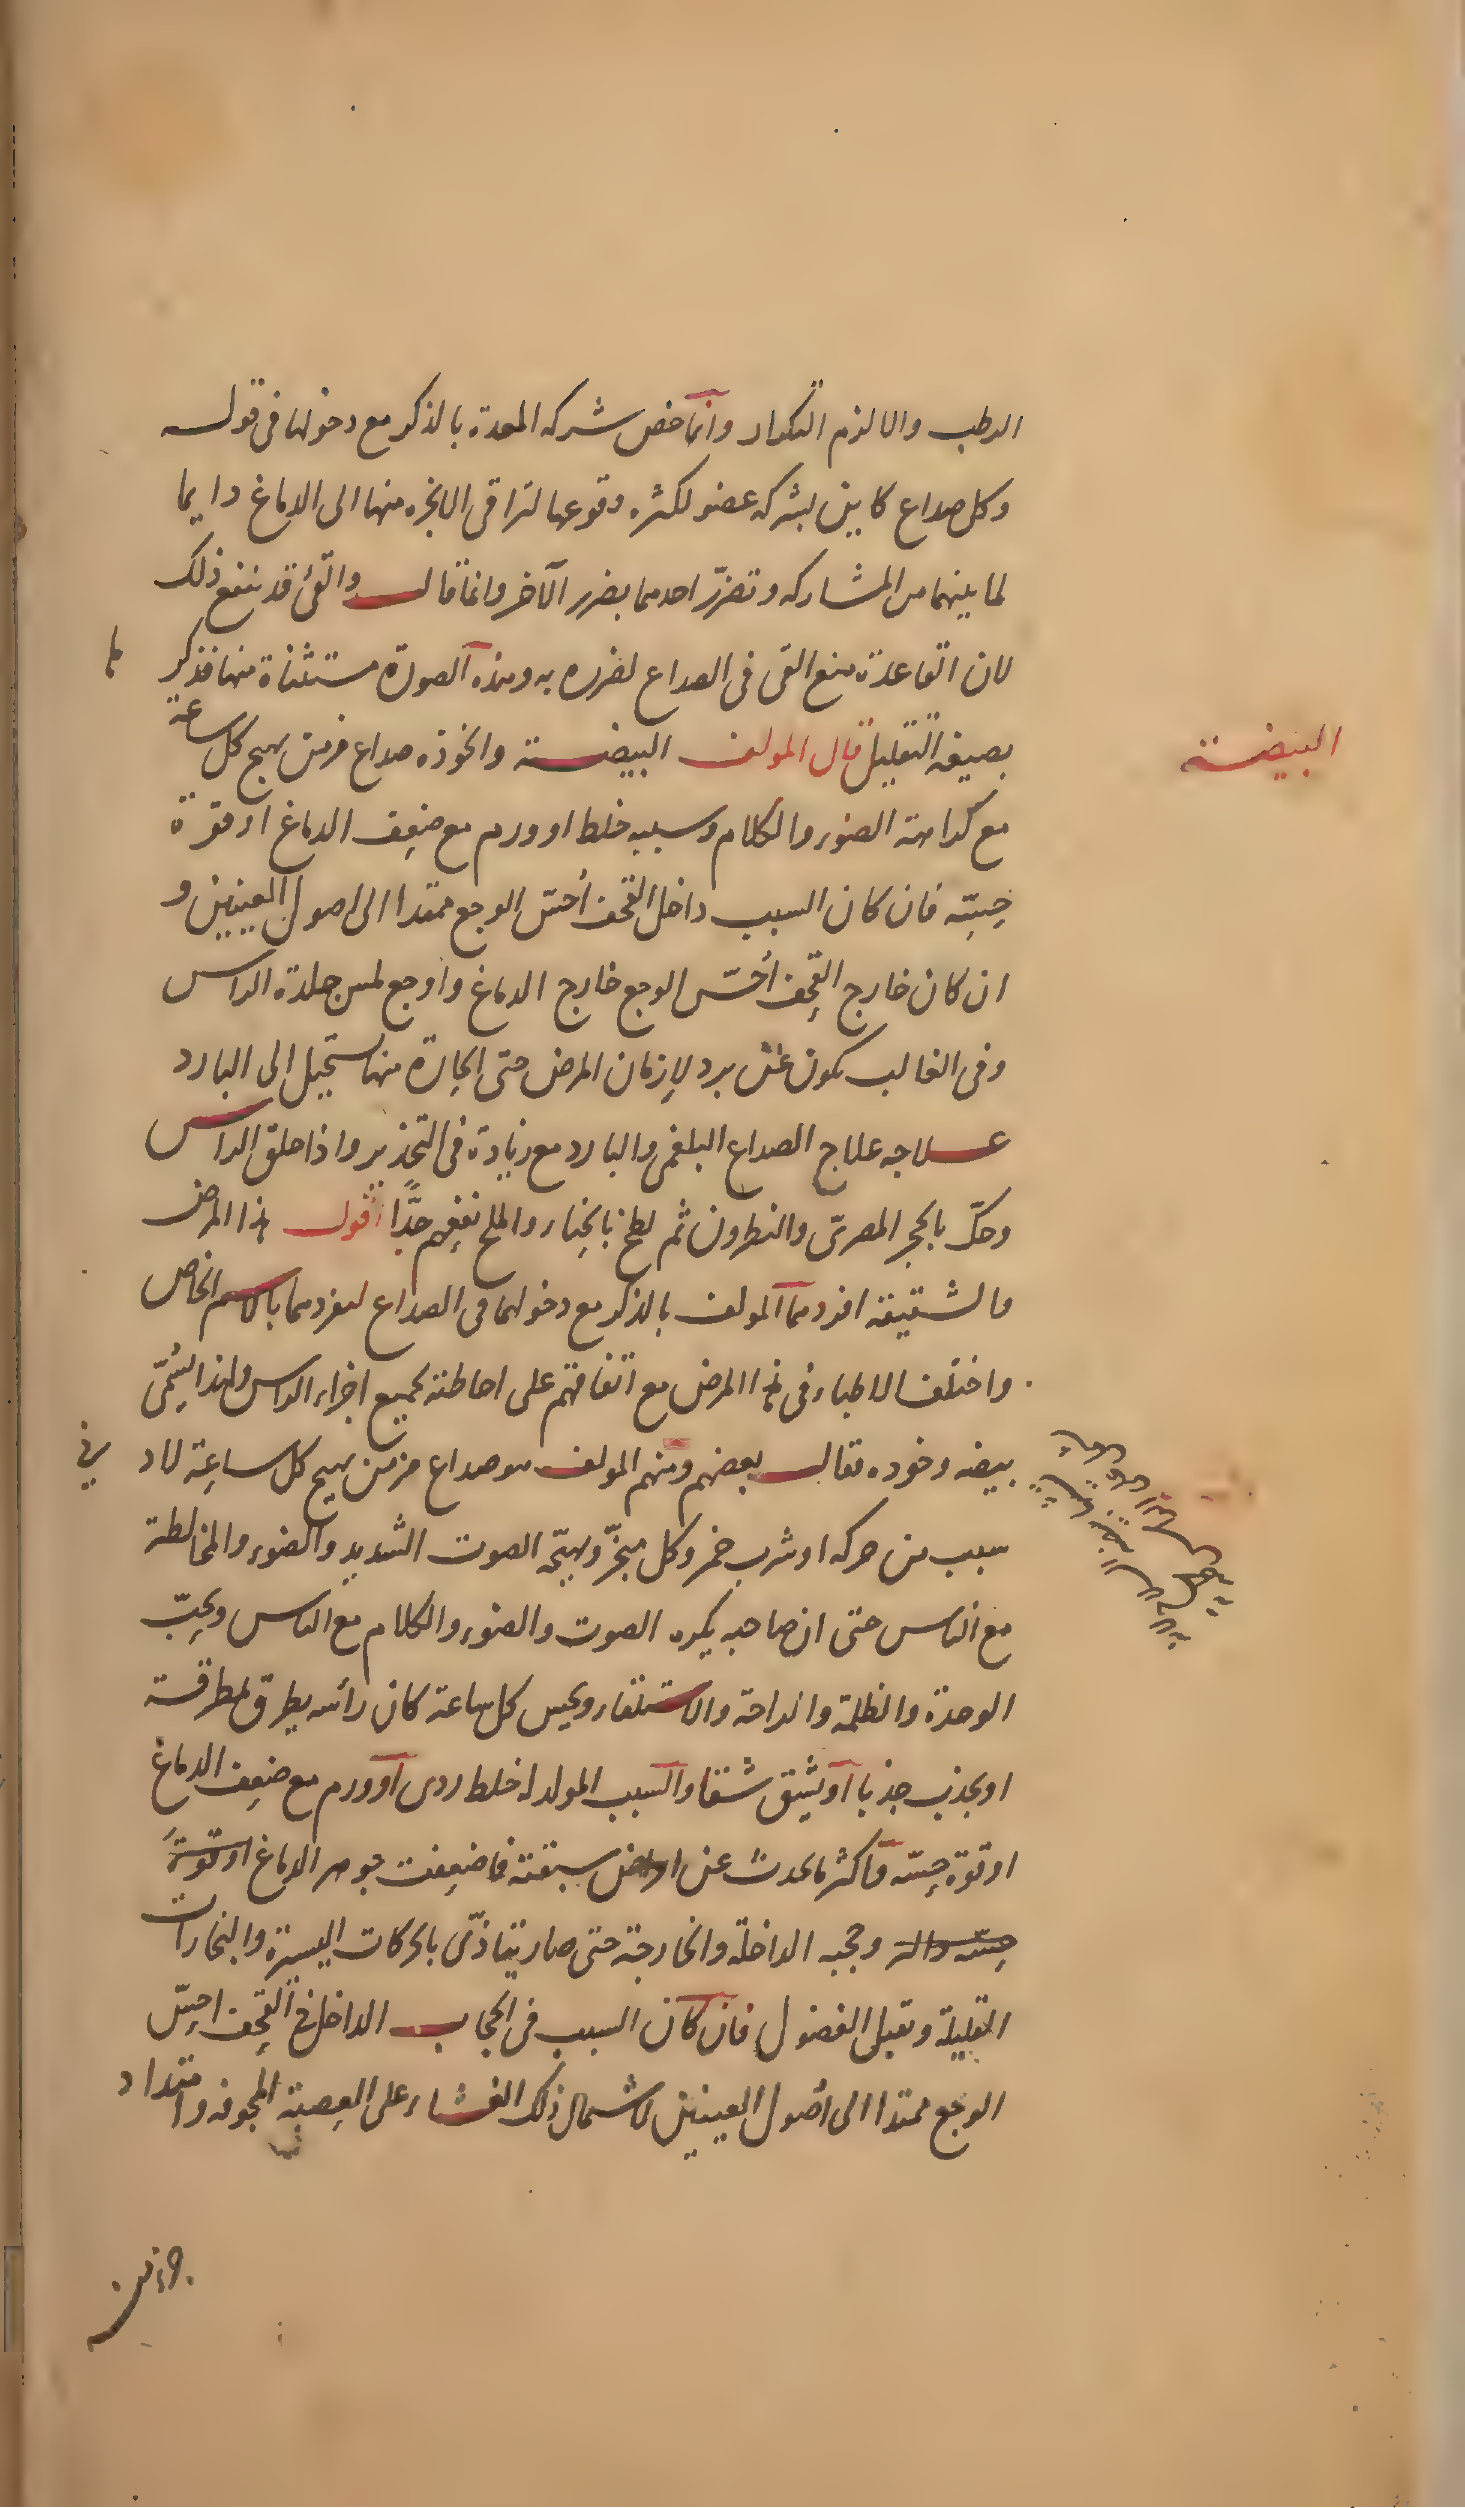 الرطب والا لزم التكرار وانما خص شركه المعدة بالذكر مع دخولها فى قوله
وكل صداع كاين بشركه عضو لكثره وقوعها لتراقى الابخره منها الى الدماغ دايما
لما بينهما من المشاركه وتضرّر احدهما بضرر الآخر وانما قال والقئ قد ينفع ذلك
لان القاعدة منع القى فى الصداع لضرره به وهذه الصورة مستثناة منها فذكر
ها
بصيغة التقليل قال المولف البيضة والخوذه صداع مزمن يهيج كل ساعة
البيضة
مع كراهة الضوء والكلام وسببه خلط او ورم مع ضعف الدماغ او قوة
حِسِّه فان كان السبب داخل القحف أحسّ الوجع ممتدا الى اصول العينين و
ان كان خارج القحف أحسّ الوجع خارج الدماغ واوجع لمس جلدة الراس
وفى الغالب يكون عن برد لإزمان المرض حتى الحارة منها تستحيل الى البارد
علاجه علاج الصداع البلغمى والبارد مع زيادة فى التخدير واذا حلق الراس
وحكّ بالحجر المصرىّ والنطرون ثم لطخ بالحناء والملح نفعهم جدًّا أقول هذا المرض
والشقيقة افردهما المولف بالذكر مع دخولهما فى الصداع لتفردهما بالاسم الخاص
واختلف الاطباء فى هذا المرض مع اتفاقهم على احاطته بجميع اجزاء الراس ولهذا يُسمّى
بيضه وخوده فقال بعضهم ومنهم المولف هو صداع مزمن يهيج كل ساعة لاد
نى
سبب من حركه او شرب خمر وكل مبخّر ويهيّجه الصوت الشديد والضوء والمخالطة
مع الناس حتى ان صاحبه يكره الصوت والضوء والكلام مع الناس ويحبّ
الوحدة والظلمة والراحة والاستلقاء ويحس كل ساعة كان رأسه يطرق بمطرقة
او يجذب جذبا او يشق شقا والسبب المولد له خلط ردى او ورم مع ضعف الدماغ
او قوة حِسّه واكثر ما يحدث عن امراض سبقته فاضعفت جوهر الدماغ او قوة
حِسّه وحجبه الداخلة والخارجة حتى صار يتاذّى بالحركات اليسيرة والبخارات
القليلة وتقبل الفضول فان كان السبب فى الحجاب الداخل فى القحف احِسّ
الوجع ممتدا الى أصول العينين لاشتمال ذلك الغشاء على العصبة المجوفه وامتداد